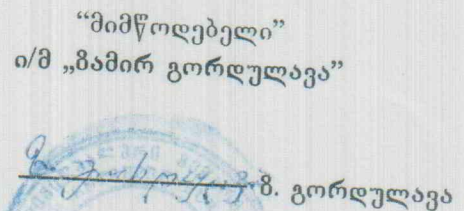 “მიმწოდებელი”
ი/მ „ზამირ გორდულავა”
ზ. გორდულავა